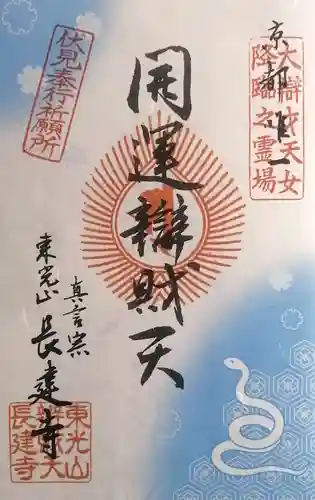 京都唯一
大辯才天女
降臨之霊場
伏見奉行祈願所
開運辯財天
真言宗
東光山 長建寺
東光山
辨才天
長建寺